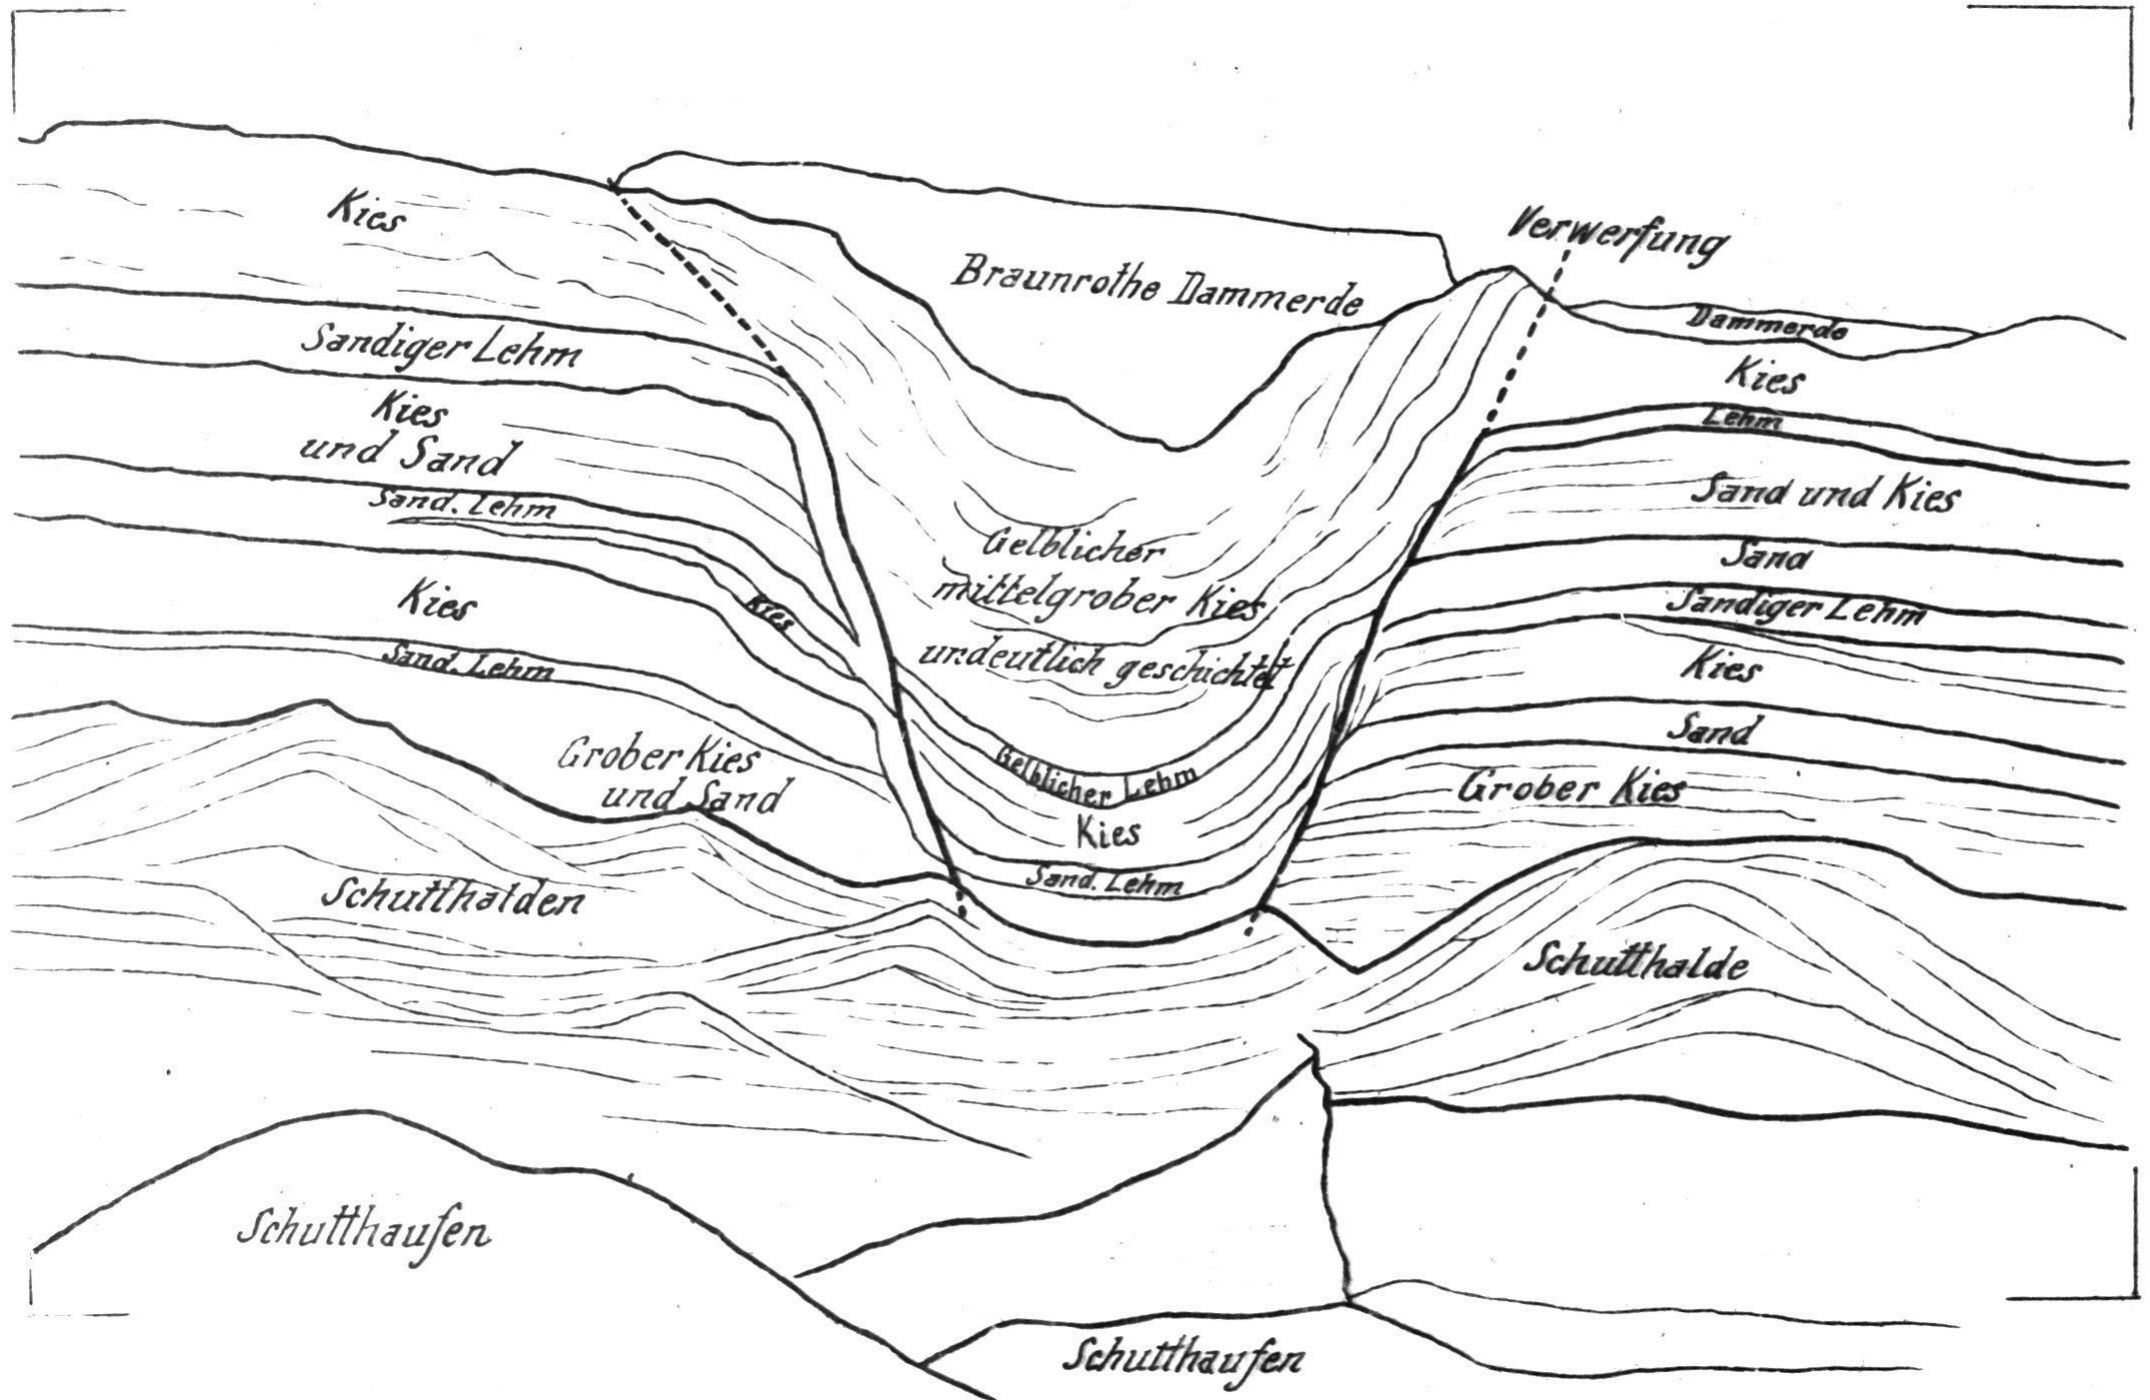 Kies
Sandiger Lehm
Kies
und Sand
Sand. Lehm
Kies
Kies
Sand. Lehm
Grober Kies
und Sand
Schutthalden
Schutthaufen
Braunrothe Dammerde
Gelblicher
mittelgrober Kies
undeutlich geschichtet
Gelblicher Lehm
Kies
Sand. Lehm
Verwerfung
Dammerde
Kies
Lehm
Sand und Kies
Sand
Sandiger Lehm
Kies
Sand
Grober Kies
Schutthalde
Schutthaufen